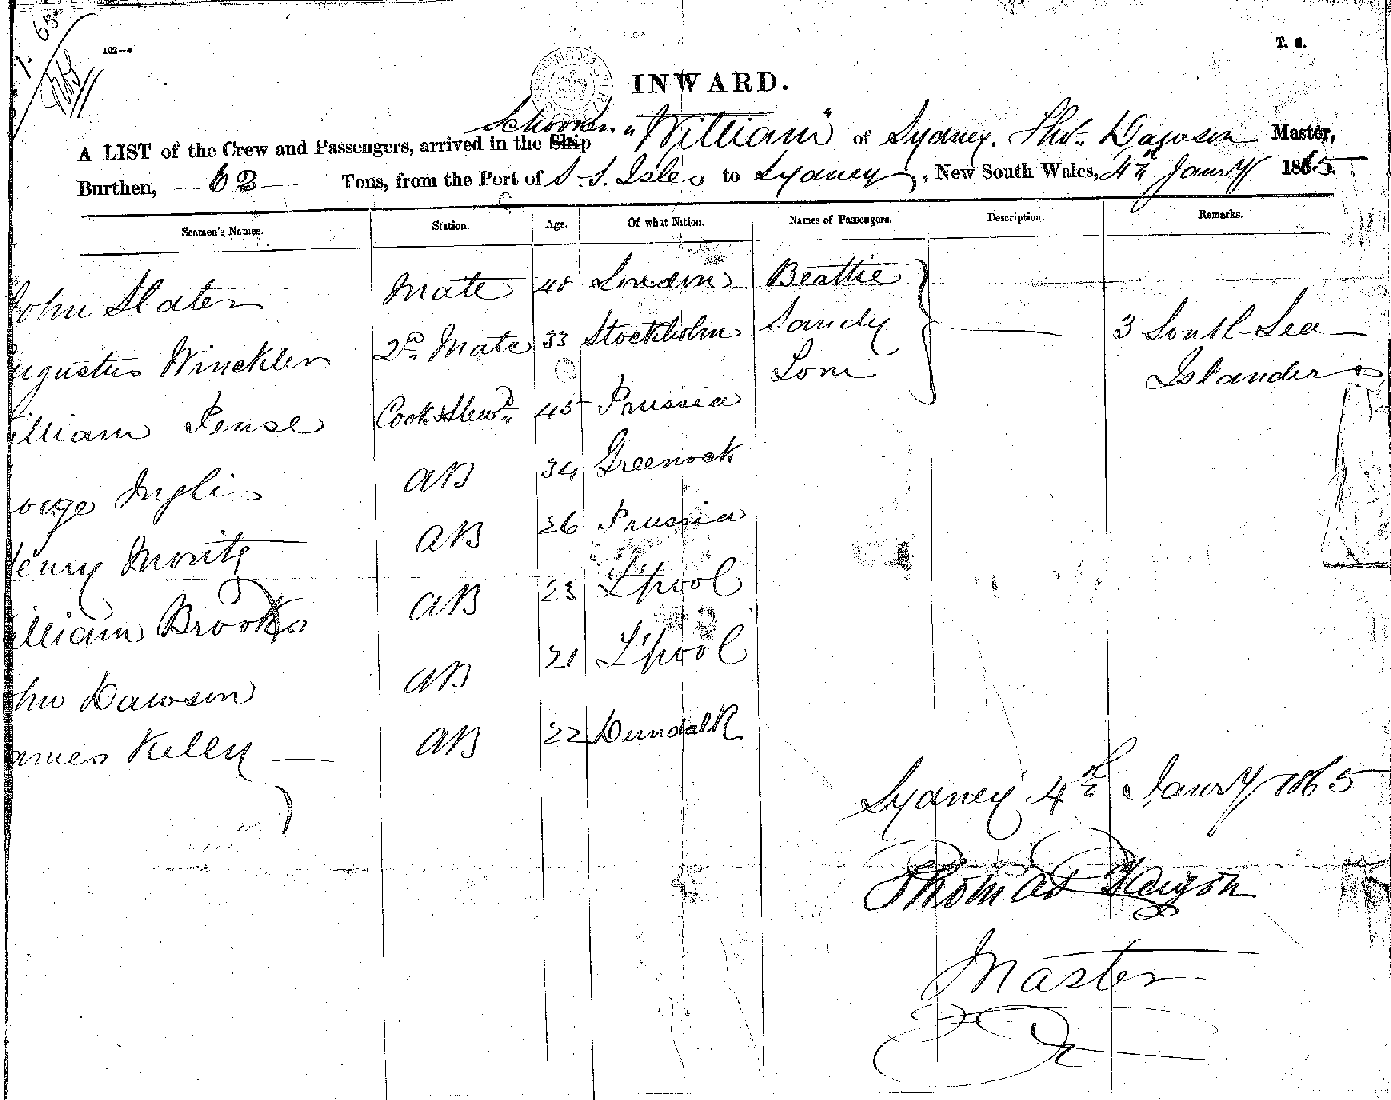 102—*
T. S.
INWARD.
A LIST of the Crew and Passengers, arrived in the Ship Schooner "William" of Sydney. Thos. Dawson Master,
Burthen, 62 Tons, from the Port of S. S. Isles to Sydney, New South Wales, 4th Janry 1865.
Seamen's Names. Station. Age. Of what Nation. Names of Passengers. Description. Remarks.
John Slater Mate 40 London Beattie
ugustus Winckler 2nd Mate 33 Stockholm Sandy 3 South Sea
Tom Islanders
illiam Pense Cook & Stewd. 45 Prussia
orge Inglis AB 34 Greenock
Henry Moritz AB 26 Prussia
illiam Brooks AB 23 L'pool
ohn Dawson AB 21 L'pool
ames Kelly AB 22 Dundalk
Sydney 4th Janry 1865
Thomas
Master